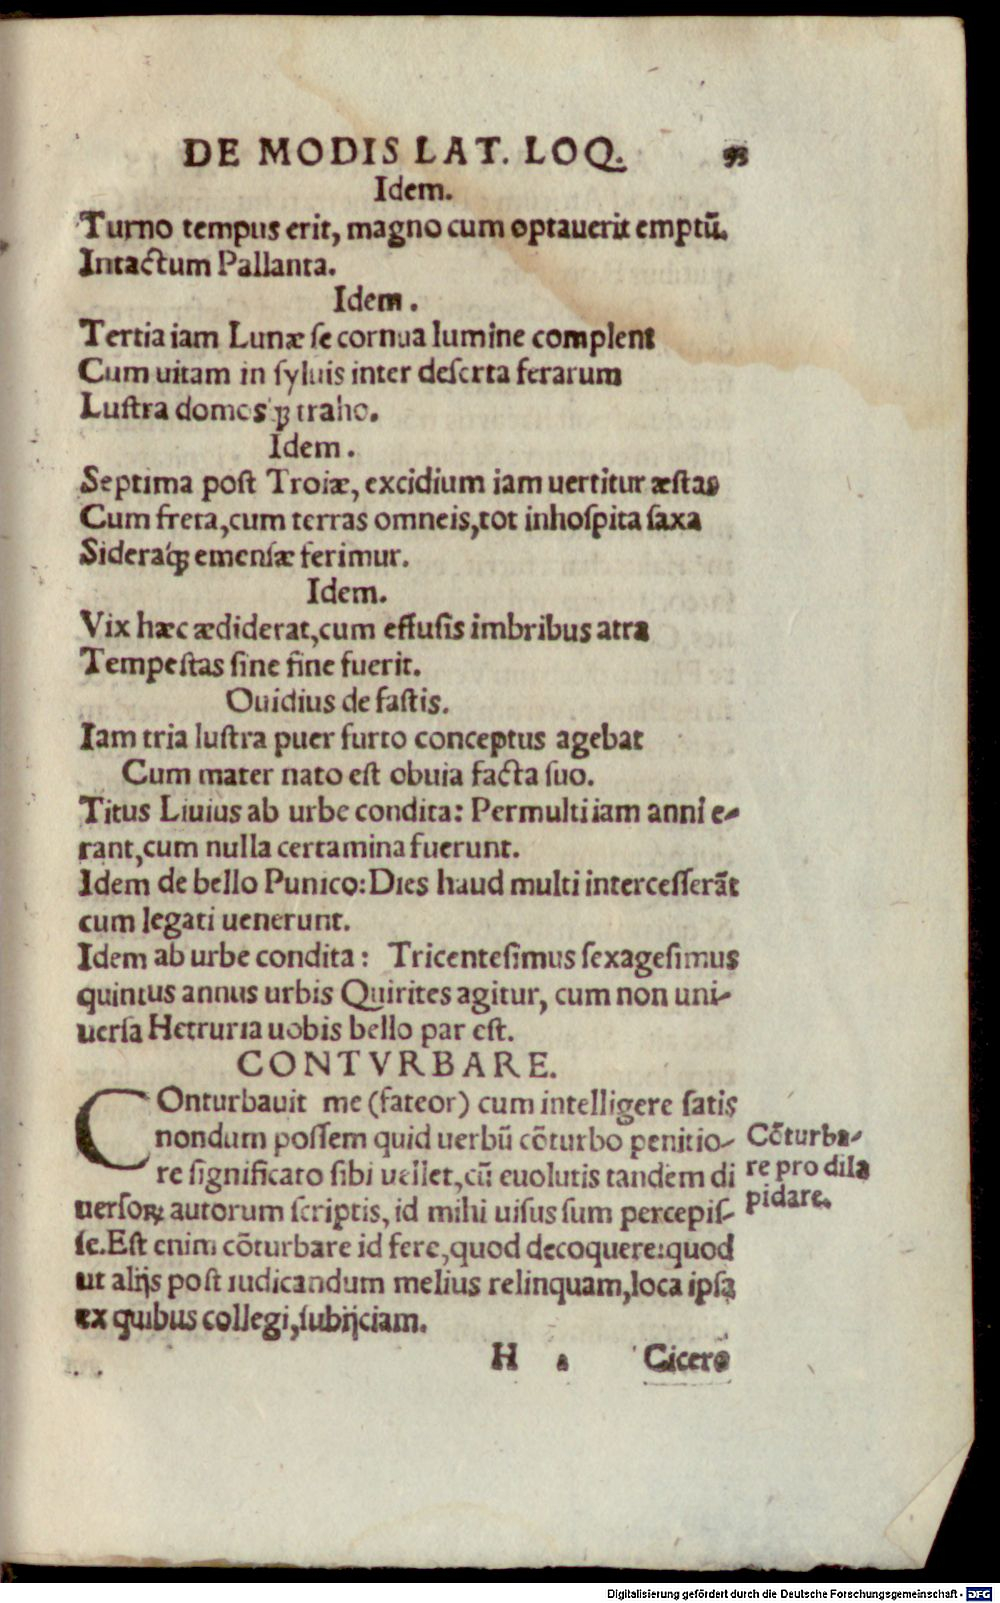 DE MODIS LAT. LOQ. 93
Idem.
Turno tempus erit, magno cum optauerit emptũ.
Intactum Pallanta.
Idem.
Tertia iam Lunæ se cornua lumine complent
Cum uitam in syluis inter deserta ferarum
Lustra domosq́; traho.
Idem.
Septima post Troiæ, excidium iam uertitur æstas
Cum freta,cum terras omneis,tot inhospita saxa
Sideraq́; emensæ ferimur.
Idem.
Vix hæc ædiderat,cum effusis imbribus atra
Tempestas sine fine fuerit.
Ouidius de fastis.
Iam tria lustra puer furto conceptus agebat
Cum mater nato est obuia facta suo.
Titus Liuius ab urbe condita: Permulti iam anni e-
rant,cum nulla certamina fuerunt.
Idem de bello Punico:Dies haud multi intercesserãt
cum legati uenerunt.
Idem ab urbe condita: Tricentesimus sexagesimus
quintus annus urbis Quirites agitur, cum non uni-
uersa Hetruria uobis bello par est.
CONTVRBARE.
COnturbauit me (fateor) cum intelligere satis
nondum possem quid uerbũ cõturbo penitio-
re significato sibi uellet,cũ euolutis tandem di
uersoꝝ autorum scriptis, id mihi uisus sum percepis-
se.Est enim cõturbare id fere,quod decoquere:quod
ut alijs post iudicandum melius relinquam,loca ipsa
ex quibus collegi,subijciam.
Cõturba-
re pro dila
pidare.
H a Cicero
Digitalisierung gefördert durch die Deutsche Forschungsgemeinschaft - DFG